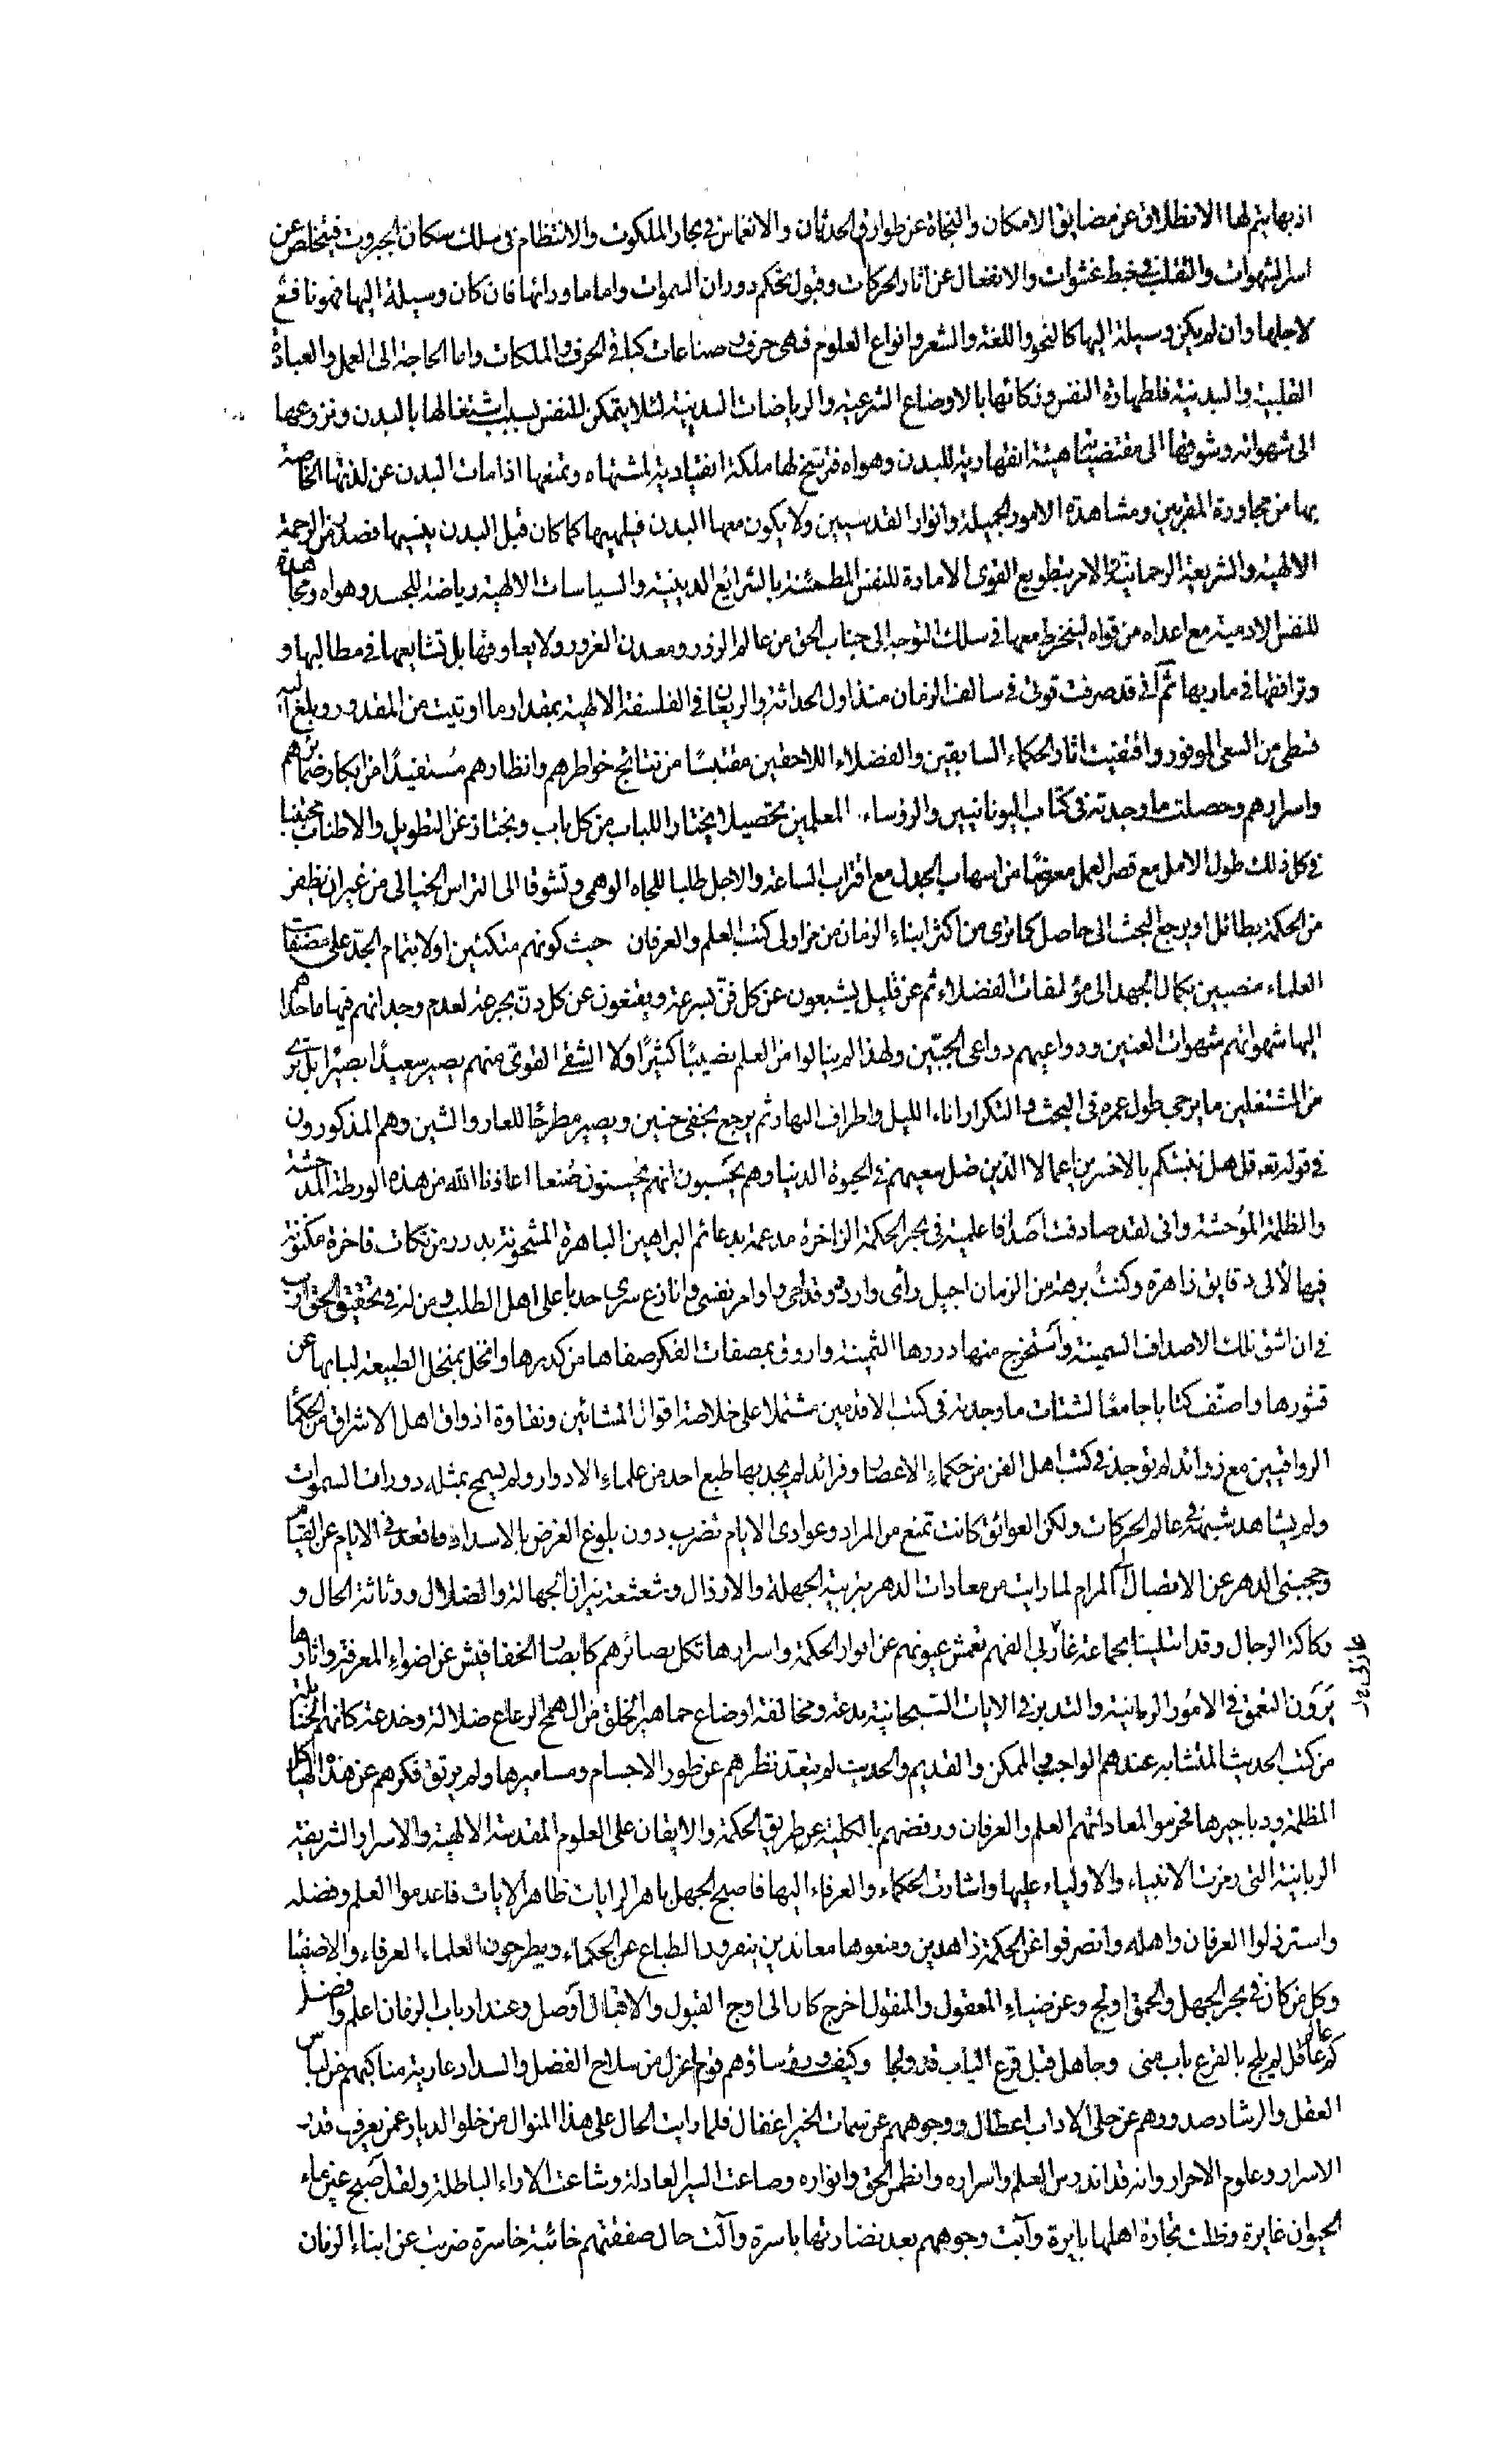 اذ بها يتم لها الانطلاق عن مضايق الامكان والنجاة عن طوارق الحدثان والانغماس في بحار الملكوت والانتظام في سلك سكان الجبروت فيتخلص عن
اسر الشهوات والتقلب في خبط عشوات والانفعال عن اثار الحركات وقبول تحكم دوران السموات واما ما ورائها فان كان وسيلة اليها فهو نافع
لاجلها وان لم يكن وسيلة اليها كالنحو واللغة والشعر وانواع العلوم فهى حرف وصناعات كباقى الحرف والملكات واما الحاجة الى العمل والعبادة
القلبية والبدنية فلطهارة النفس وزكائها بالاوضاع الشرعية والرياضات البدنية لئلا يتمكن للنفس بسبب اشتغالها بالبدن ونزوعها
الى شهواته وشوقها الى مقتضياته هيئة انقهارية للبدن وهواه فترسخ لها ملكة انقيادية لمشتهاه وتمنعها اذا مات البدن عن لذتها الخاصة
بها من مجاورة المقربين ومشاهدة الامور الجميلة وانوار القدسيين ولا يكون معها البدن فيلهيها كما كان قبل البدن ينسيها فصدر من الرحمة
الالهية والشريعة الرحمانية الامر بتطويع القوى الامارة للنفس المطمئنة بالشرائع الدينية والسياسات الالهية رياضة للجسد وهواه ومجاهدة
للنفس الادمية مع اعداه من قواه لينخرط معها في سلك التوجه الى جناب الحق من عالم الزور ومعدن الغرور ولا يعاوقها بل تشايعها في مطالبها و
وترافقها في ماربها ثم انى قد صرفت قوتى في سالف الزمان منذ اول الحداثة والريعان في الفلسفة الالهية بمقدار ما اوتيت من المقدور وبلغ اليه
قسطى من السعى الموفور واقتفيت اثار الحكماء السابقين والفضلاء اللاحقين مقتبسًا من نتائج خواطرهم وانظارهم مستفيدًا من ابكار ضمائرهم
واسرارهم وحصلت ما وجدته في كتاب اليونانيين والرؤساء المعلمين تحصيلا يختار اللباب من كل باب ويجتاز عن التطويل والاطناب مجتنبا
في كل ذلك طول الامل مع قصر العمل معرضًا من اسهاب الجدل مع اقتراب الساعة والاجل طلبا للجاه الوهمى وتشوقا الى التراس الخيالى من غير ان يظفر
من الحكمة بطائل او يرجع البحث الى حاصل كما ترى من اكثر ابناء الزمان من مزاولى كتب العلم والعرفان حيث كونهم منكبين اولا بتمام الجدّ على مصنفات
العلماء منصبين بكمال الجهد الى مؤلفات الفضلاء ثم عن قليل يشبعون عن كل فنّ بسرعة ويقنعون عن كل دنّ بجرعة لعدم وجدانهم فيها ما حداهم
اليها شهواتهم شهوات العنين ودواعيهم دواعى الجنين ولهذا لم ينالوا من العلم نصيبًا كثيرًا ولا الشقى الغوى منهم يصير سعيدًا بصيرًا بل ترى
من المشتغلين ما يرجى طول عمره في البحث والتكرار اناء الليل واطراف النهار ثم يرجع بخفى حنين ويصير مطرحًا للعار والشين وهم المذكورون
في قوله تعه قل هل ننبئكم بالاخسرين اعمالا الذين ضل سعيهم في الحيوة الدنيا وهم يحسبون انهم يحسنون صنعا اعاذنا الله من هذه الورطة المدحشة
والظلمة الموحشة وانى لقد صادفت اصدافا علمية في بحر الحكمة الزاخرة مدعمة بدعائم البراهين الباهرة المشحونة بدرر من نكات فاخرة مكنونة
فيها لألى دقايق زاهرة وكنت برهة من الزمان اجيل رأى واردد قداحى واوامر نفسى وانازع سرى حدبا على اهل الطلب ومن له في تحقيق الحق ارب
في ان اشق تلك الاصداف السمينة واستخرج منها دررها الثمينة واروق بمصفات الفكر صفاها من كدرها وانخل بمنخل الطبيعة لبابها عن
قشورها واصنّف كتابا جامعًا لشتات ما وجدته في كتب الاقدمين مشتملا على خلاصة اقوال المشائين ونقاوة اذواق اهل الاشراق من الحكماء
الرواقيين مع زوائد لم توجد في كتب اهل الفن من حكماء الاعصار وفرائد لم يجد بها طبع احد من علماء الادوار ولم يسمح بمثله دورات السموات
ولم يشاهد شبهه في عالم الحركات ولكن العوائق كانت تمنع من المراد وعوادى الايام تضرب دون بلوغ الغرض بالاسداد فاقعدنى الايام عن القيام
وحجبنى الدهر عن الاتصال الى المرام لما رايت من معادات الدهر بتربية الجهلة والارذال وشعشعة نيران الجهالة والضلال ورثاثة الحال و
ركاكة الرجال وقد ابتلينا بجماعة غاربى الفهم تعمش عيونهم عن انوار الحكمة واسرارها تكل بصائرهم كابصار الخفافيش عن اضواء المعرفة واثارها
يَرَون التعمق في الامور الربانية والتدبر في الايات السبحانية بدعة ومخالفة اوضاع جماهير الخلق من الهمج الرعاع ضلالة وخدعة كانهم الحنابلة
من كتب الحديث المتشابه عندهم الواجب والممكن والقديم والحديث لم يتعد نظرهم عن طور الاجسام ومساميرها ولم يرتق فكرهم عن هذه الهياكل
المظلمة ودياجيرها فحرموا لمعاداتهم العلم والعرفان ورفضهم بالكلية عن طريق الحكمة والايقان على العلوم المقدسة الالهية والاسرار الشريفة
الربانية التى رمزت الانبياء والاولياء عليها واشارت الحكماء والعرفاء اليها فاصبح الجهل باهر الرايات ظاهر الايات فاعدموا العلم وفضله
واسترذلوا العرفان واهله وانصرفوا عن الحكمة زاهدين ومنعوها معاندين ينفرون الطباع عن الحكماء ويطرحون العلماء العرفاء والاصفيا
وكل من كان في بحر الجهل والحمق اولج وعن ضياء المعقول والمنقول اخرج كان الى اوج القبول والاقبال اوصل وعند ارباب الزمان اعلم وافضل
كم عالم لم يلج بالقرع باب منى وجاهل قبل قرع الباب قد ولجا وكيف ورؤساؤهم قوم اعزل من سلاح الفضل والسداد عارية مناكبهم من لباس
العقل والرشاد صدورهم عن حلى الاداب اعطال ووجوههم عن سمات الخير اغفال فلما رايت الحال على هذا المنوال من خلو الديار عمن يعرف قدر
الاسرار وعلوم الاحرار وانه قد اندرس العلم واسراره وانطمس الحق وانواره وضاعت السير العادلة وشاعت الاراء الباطلة ولقد اصبح عين ماء
الحيوان غايرة وظلت تجارة اهلها بايرة وآبت وجوههم بعد نضارتها باسرة وآلت حال صفقتهم خائبة خاسرة ضربت عن ابناء الزمان